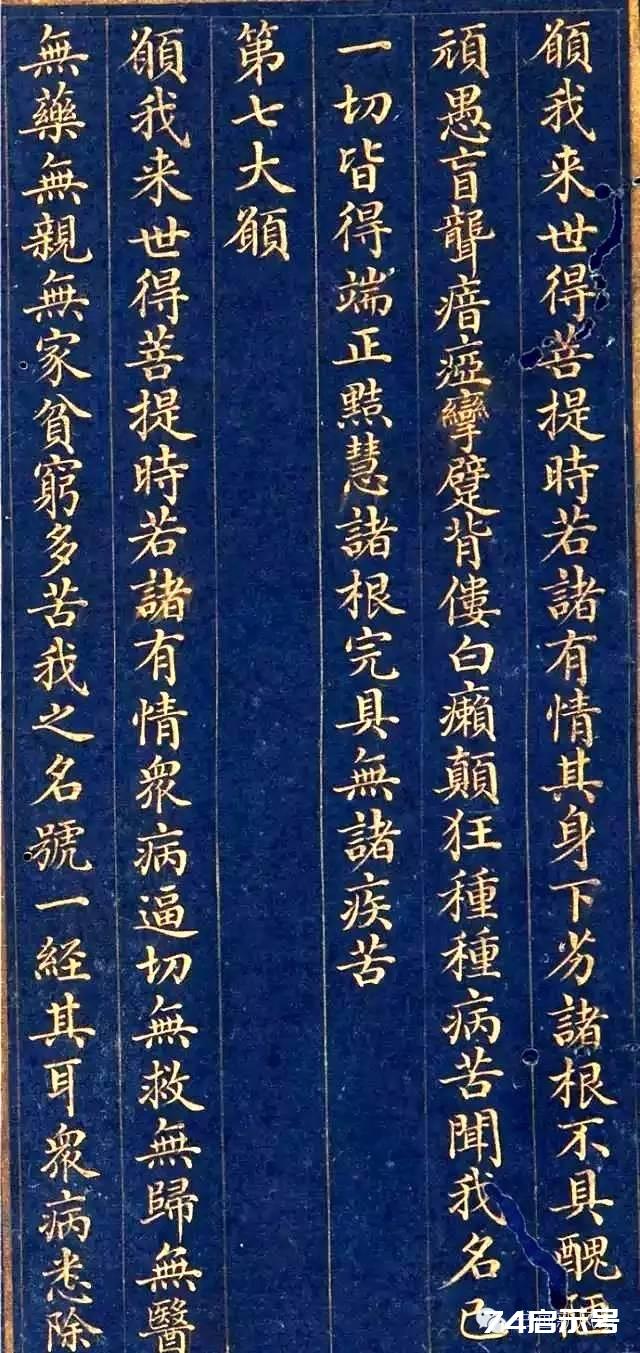 願我来世得菩提時若諸有情其身下劣諸根不具醜陋
頑愚盲聾瘖瘂攣躄背僂白癩顛狂種種病苦聞我名已
一切皆得端正黠慧諸根完具無諸疾苦
第七大願
願我来世得菩提時若諸有情衆病逼切無救無歸無醫
無藥無親無家貧窮多苦我之名號一経其耳衆病悉除
74启示号